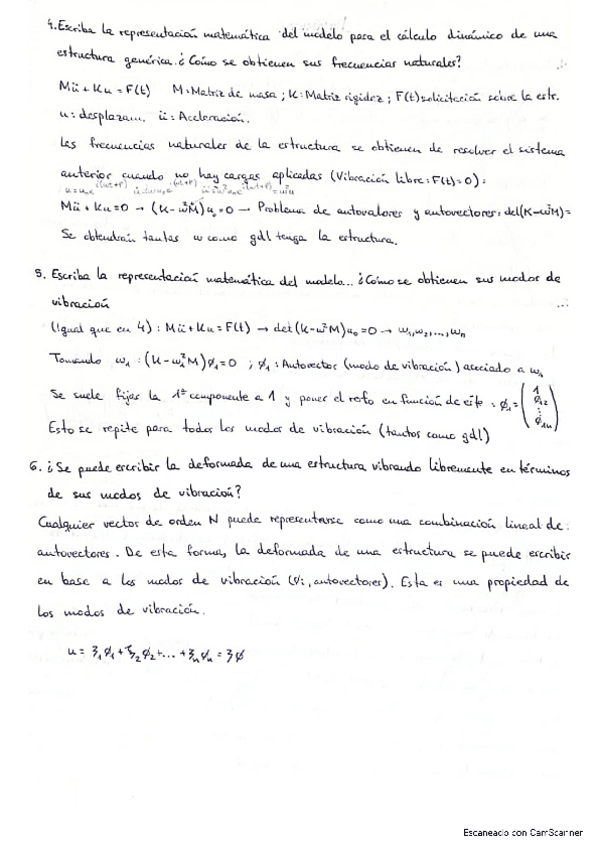 4. Escriba la representación matemática del modelo para el cálculo dinámico de una
estructura genérica. ¿Cómo se obtienen sus frecuencias naturales?
Mü + Ku = F(t) M: Matriz de masa ; K: Matriz rigidez ; F(t) solicitación sobre la estr.
u: desplazam. ü: Aceleración.
Las frecuencias naturales de la estructura se obtienen de resolver el sistema
anterior cuando no hay cargas aplicadas (Vibración libre: F(t)=0):
Mü + Ku = 0 → (K-ω²M)u₀ = 0 → Problema de autovalores y autovectores: det(K-ω²M)=
Se obtendrán tantas ω como gdl tenga la estructura.
5. Escriba la representación matemática del modelo... ¿Cómo se obtienen sus modos de
vibración
(Igual que en 4): Mü + Ku = F(t) → det(K-ω²M)u₀ = 0 → ω₁, ω₂, ..., ωn
Tomando ω₁ : (K-ω₁²M)ϕ₁ = 0 ; ϕ₁ : Autovector (modo de vibración) asociado a ω₁
Se suele fijar la 1ª componente a 1 y poner el resto en función de éste : ϕ₁ = (1 ϕ₁₂ ⋮ ϕ₁ₙ)
Esto se repite para todos los modos de vibración (tantos como gdl)
6. ¿Se puede escribir la deformada de una estructura vibrando libremente en términos
de sus modos de vibración?
Cualquier vector de orden N puede representarse como una combinación lineal de:
autovectores. De esta forma, la deformada de una estructura se puede escribir
en base a los modos de vibración (ϕi, autovectores). Esta es una propiedad de
los modos de vibración.
u = ξ₁ϕ₁ + ξ₂ϕ₂ + ... + ξₙϕₙ = ξϕ
Escaneado con CamScanner